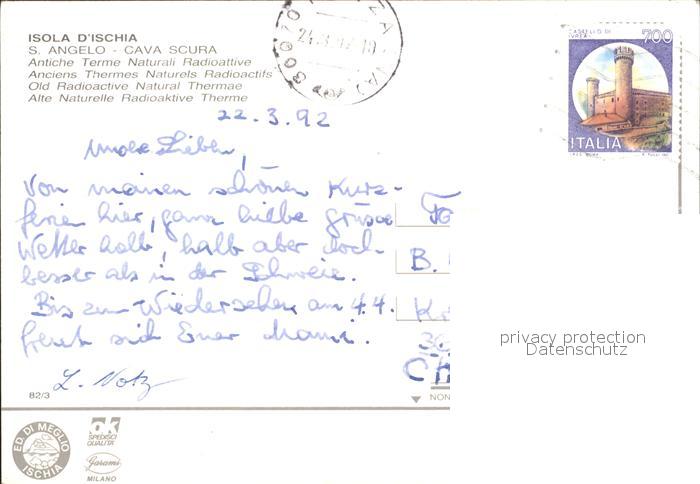 ISOLA D'ISCHIA
S. ANGELO - CAVA SCURA
Antiche Terme Naturali Radioattive
Anciens Thermes Naturels Radioactifs
Old Radioactive Natural Thermae
Alte Naturelle Radioaktive Therme
700
ITALIA
22.3.92
Lieben,
Von meinen schönen Kurz-
ferien hier, ganz liebe Grüsse
Wetter halb, halb aber doch
besser als in der Schweiz.
Bis zum Wiedersehen am 4.4.
freut sich Euer Mami.
B.
L. Notz
82/3
NON
privacy protection
Datenschutz
ED. DI MEGLIO
ISCHIA
ok
SPEDISCI
QUALITÀ
Garami
MILANO